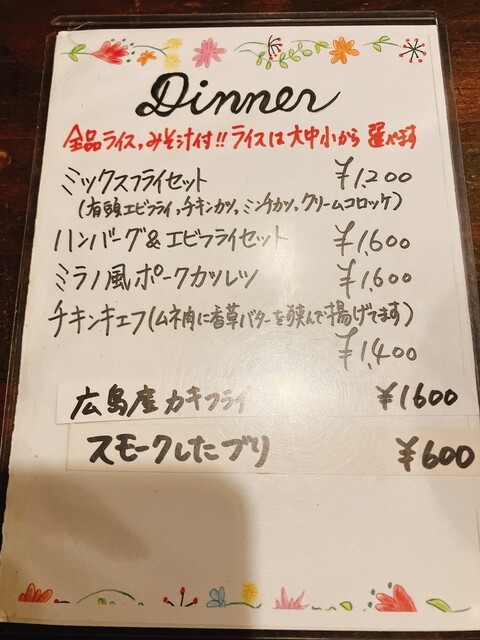 Dinner
全品ライス,みそ汁付!!ライスは大中小から選べます
ミックスフライセット ¥1,200
(有頭エビフライ,チキンカツ,ミンチカツ,クリームコロッケ)
ハンバーグ&エビフライセット ¥1,600
ミラノ風ポークカツレツ ¥1,600
チキンキエフ(ムネ肉に香草バターを挟んで揚げてます)
¥1,400
広島産カキフライ ¥1600
スモークしたブリ ¥600